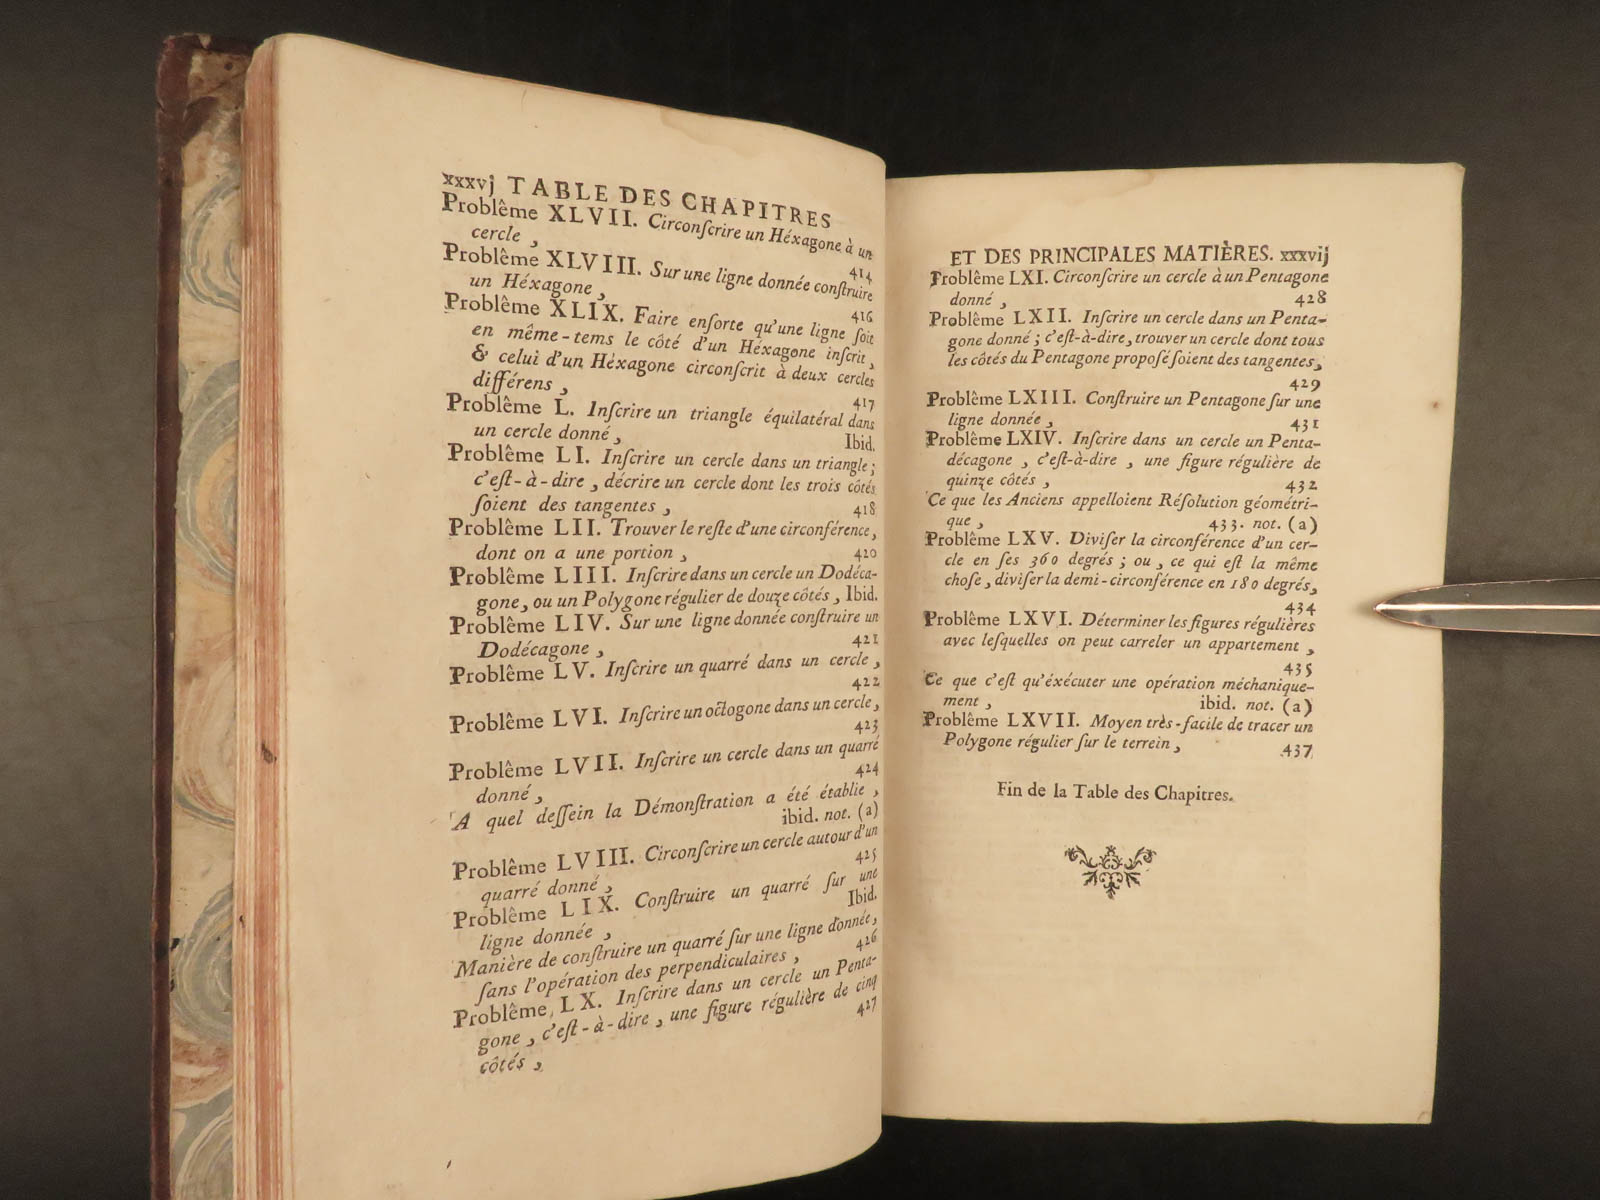 xxxvj TABLE DES CHAPITRES
Problême XLVII. Circonſcrire un Héxagone à un
cercle, 414
Problême XLVIII. Sur une ligne donnée conſtruire
un Héxagone, 416
Problême XLIX. Faire enſorte qu'une ligne ſoit
en même-tems le côté d'un Héxagone inſcrit,
& celui d'un Héxagone circonſcrit à deux cercles
différens, 417
Problême L. Inſcrire un triangle équilatéral dans
un cercle donné, Ibid.
Problême LI. Inſcrire un cercle dans un triangle;
c'eſt-à-dire, décrire un cercle dont les trois côtés
ſoient des tangentes, 418
Problême LII. Trouver le reſte d'une circonférence,
dont on a une portion, 420
Problême LIII. Inſcrire dans un cercle un Dodéca-
gone, ou un Polygone régulier de douze côtés, Ibid.
Problême LIV. Sur une ligne donnée conſtruire un
Dodécagone, 421
Problême LV. Inſcrire un quarré dans un cercle,
422
Problême LVI. Inſcrire un octogone dans un cercle,
423
Problême LVII. Inſcrire un cercle dans un quarré
donné, 424
A quel deſſein la Démonſtration a été établie,
ibid. not. (a)
Problême LVIII. Circonſcrire un cercle autour d'un
quarré donné, 425
Problême LIX. Conſtruire un quarré ſur une
ligne donnée, Ibid.
Manière de conſtruire un quarré ſur une ligne donnée,
ſans l'opération des perpendiculaires, 426
Problême LX. Inſcrire dans un cercle un Penta-
gone, c'eſt-à-dire, une figure régulière de cinq
côtés, 427
ET DES PRINCIPALES MATIÈRES. xxxvij
Problême LXI. Circonſcrire un cercle à un Pentagone
donné, 428
Problême LXII. Inſcrire un cercle dans un Penta-
gone donné; c'eſt-à-dire, trouver un cercle dont tous
les côtés du Pentagone propoſé ſoient des tangentes,
429
Problême LXIII. Conſtruire un Pentagone ſur une
ligne donnée, 431
Problême LXIV. Inſcrire dans un cercle un Penta-
décagone, c'eſt-à-dire, une figure régulière de
quinze côtés, 432
Ce que les Anciens appelloient Réſolution géométri-
que, 433. not. (a)
Problême LXV. Diviſer la circonférence d'un cer-
cle en ſes 360 degrés; ou, ce qui eſt la même
choſe, diviſer la demi-circonférence en 180 degrés,
434
Problême LXVI. Déterminer les figures régulières
avec leſquelles on peut carreler un appartement,
435
Ce que c'eſt qu'éxécuter une opération méchanique-
ment, ibid. not. (a)
Problême LXVII. Moyen très-facile de tracer un
Polygone régulier ſur le terrein, 437
Fin de la Table des Chapitres.